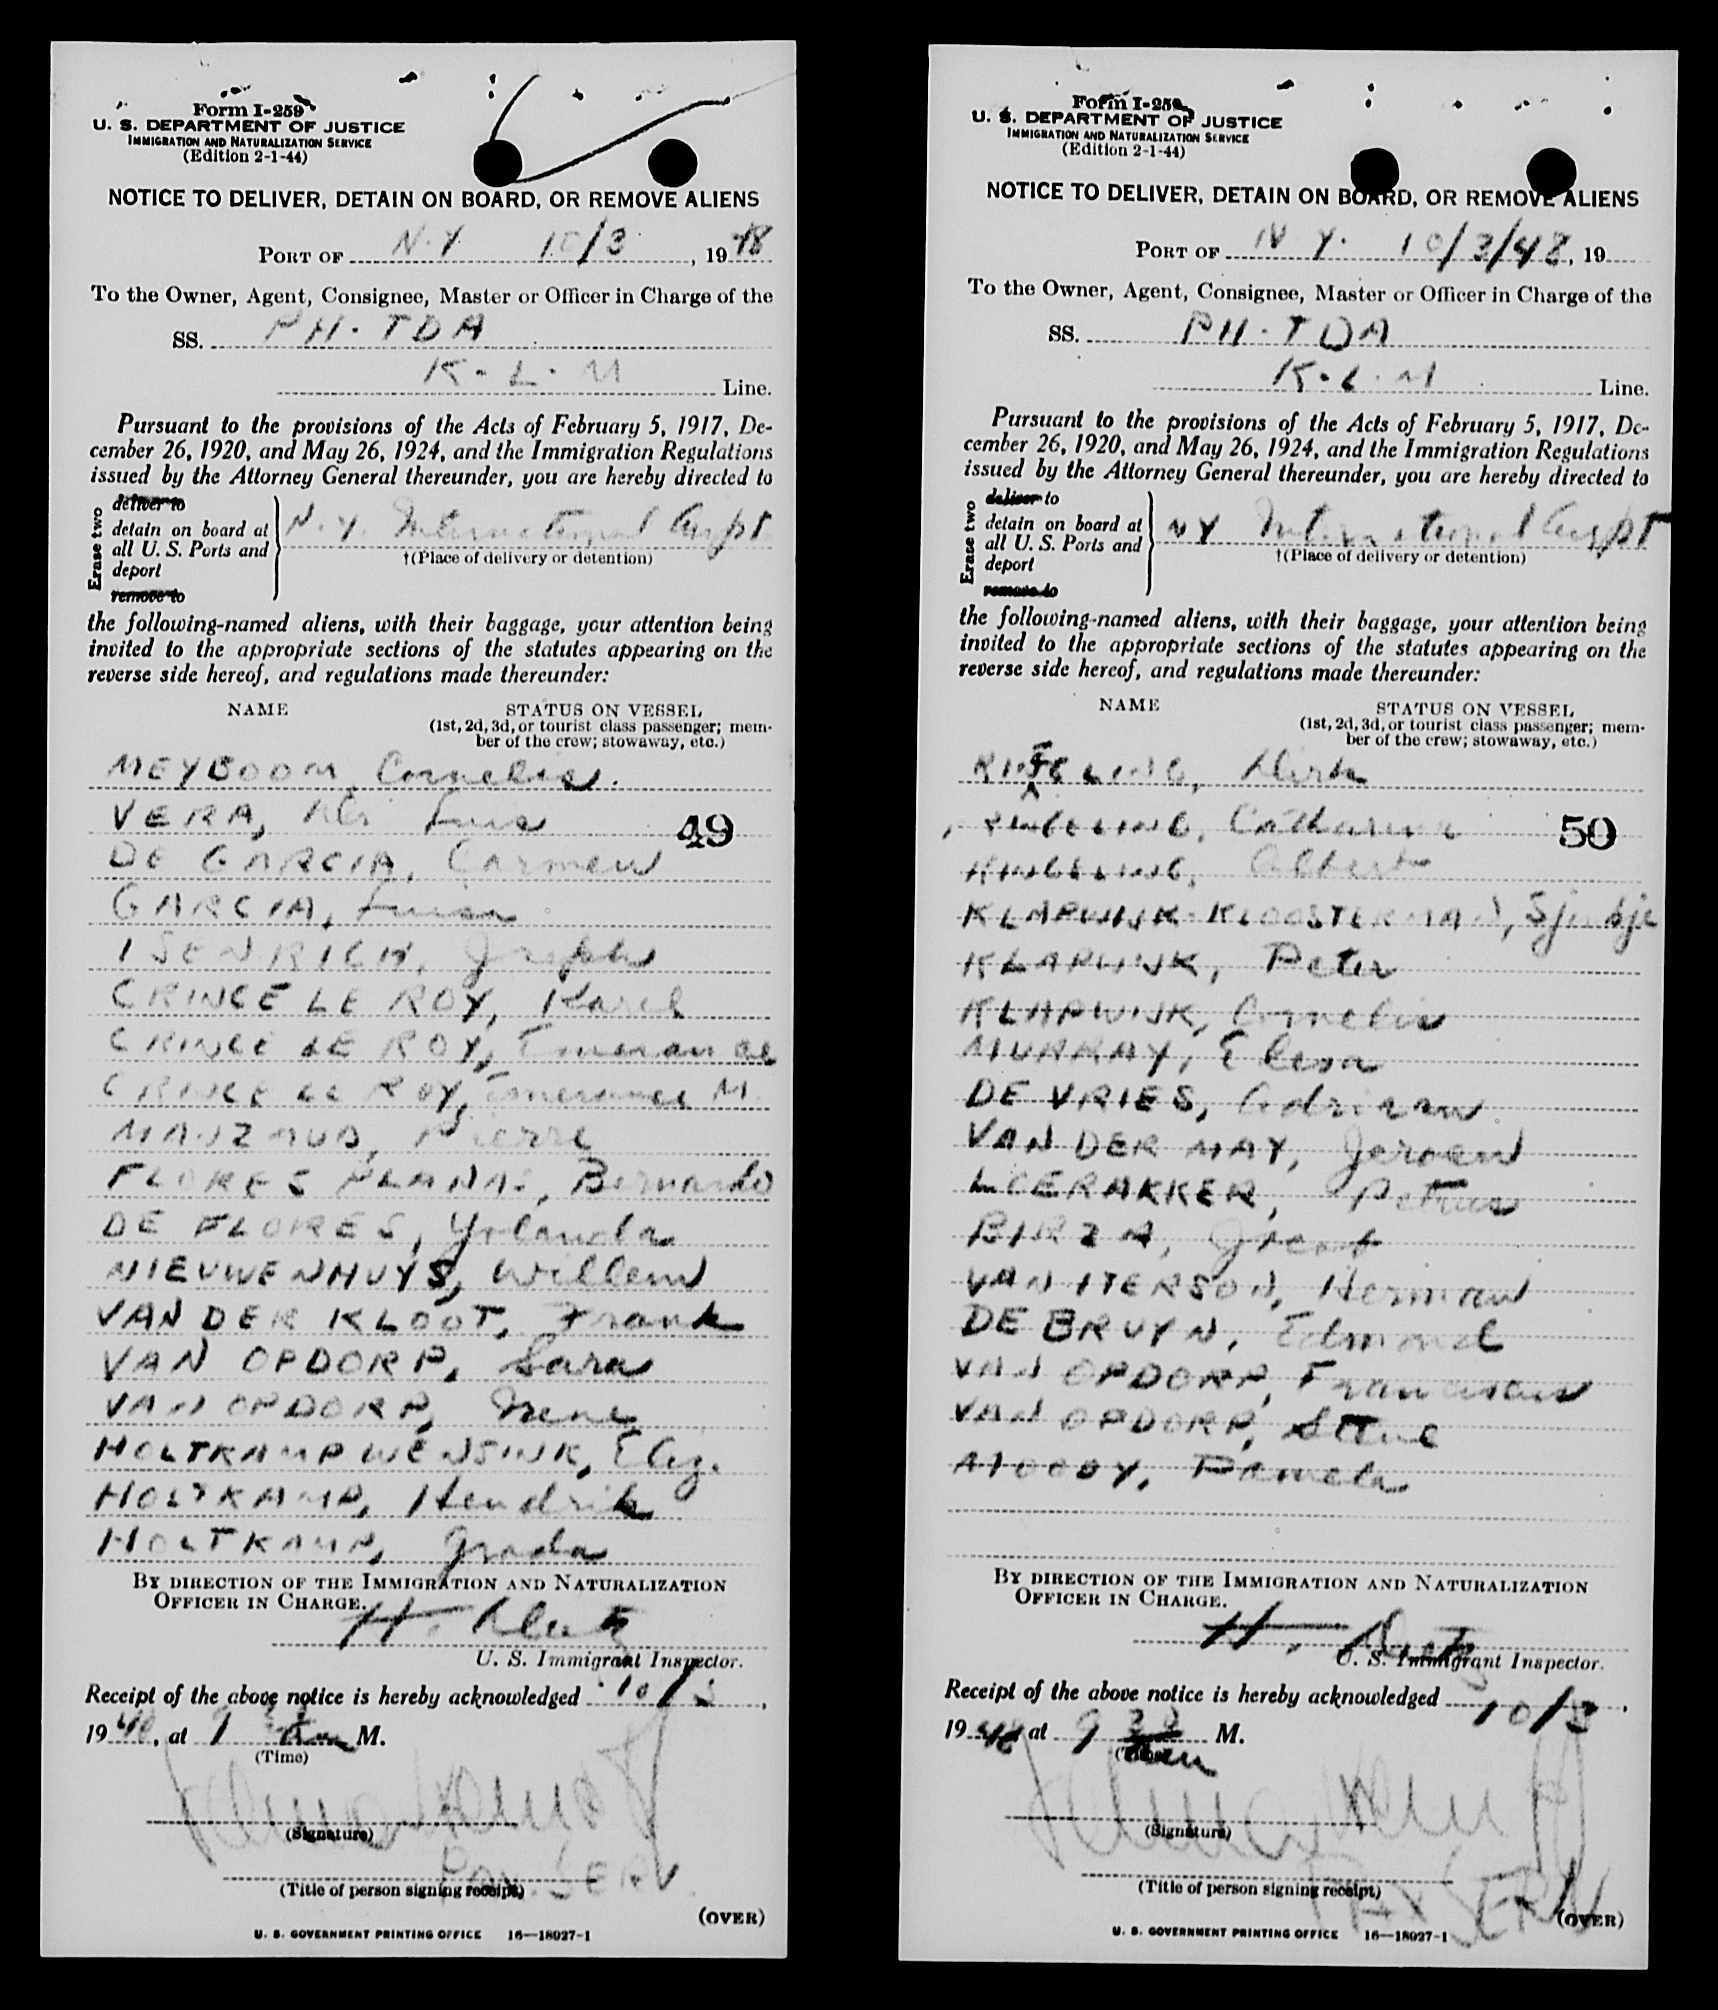 Form I-259
U. S. DEPARTMENT OF JUSTICE
IMMIGRATION AND NATURALIZATION SERVICE
(Edition 2-1-44)
NOTICE TO DELIVER, DETAIN ON BOARD, OR REMOVE ALIENS
PORT OF N.Y 10/3, 1948
To the Owner, Agent, Consignee, Master or Officer in Charge of the
SS. PH-TDA
K.L.M Line.
Pursuant to the provisions of the Acts of February 5, 1917, De-
cember 26, 1920, and May 26, 1924, and the Immigration Regulations
issued by the Attorney General thereunder, you are hereby directed to
Erase two
deliver to
detain on board at
all U. S. Ports and
deport
remove to
N.Y. International Airpt
†(Place of delivery or detention)
the following-named aliens, with their baggage, your attention being
invited to the appropriate sections of the statutes appearing on the
reverse side hereof, and regulations made thereunder:
NAME STATUS ON VESSEL
(1st, 2d, 3d, or tourist class passenger; mem-
ber of the crew; stowaway, etc.)
MEYBOOM, Cornelis.
VERA, Luis
49
DE GARCIA, Carmen
GARCIA, Luisa
ISENRICH, Joseph
CRINCE LE ROY, Karel
CRINCE LE ROY, Emerance
CRINCE LE ROY, Emerance M.
MANZAUD, Pierre
FLORES PLANAS, Bernardo
DE FLORES, Yolanda
NIEUWENHUYS, Willem
VAN DER KLOOT, Frank
VAN OPDORP, Sara
VAN OPDORP, Irene
HOLTKAMP WENSINK, Eliz.
HOLTKAMP, Hendrik
HOLTKAMP, Grada
BY DIRECTION OF THE IMMIGRATION AND NATURALIZATION
OFFICER IN CHARGE.
H.
U. S. Immigrant Inspector.
Receipt of the above notice is hereby acknowledged 10/3,
1948, at 9 M.
(Time)
(Signature)
PAX. SERV.
(Title of person signing receipt)
(OVER)
U. S. GOVERNMENT PRINTING OFFICE 16—18027-1
Form I-259
U. S. DEPARTMENT OF JUSTICE
IMMIGRATION AND NATURALIZATION SERVICE
(Edition 2-1-44)
NOTICE TO DELIVER, DETAIN ON BOARD, OR REMOVE ALIENS
PORT OF N Y. 10/3/48, 19
To the Owner, Agent, Consignee, Master or Officer in Charge of the
SS. PH-TDA
K.L.M Line.
Pursuant to the provisions of the Acts of February 5, 1917, De-
cember 26, 1920, and May 26, 1924, and the Immigration Regulations
issued by the Attorney General thereunder, you are hereby directed to
Erase two
deliver to
detain on board at
all U. S. Ports and
deport
remove to
NY International Airpt
†(Place of delivery or detention)
the following-named aliens, with their baggage, your attention being
invited to the appropriate sections of the statutes appearing on the
reverse side hereof, and regulations made thereunder:
NAME STATUS ON VESSEL
(1st, 2d, 3d, or tourist class passenger; mem-
ber of the crew; stowaway, etc.)
Dirk
Catharina
50
Albert
KLAPWIJK-KLOOSTERMAN, Sjoukje
KLAPWIJK, Peter
KLAPWIJK, Cornelis
MURRAY, Elisa
DE VRIES, Adriaan
VAN DER MAY, Jeroen
LCERAKKER, Petrus
BIRZA,
VAN ITERSON, Herman
DE BRUYN, Edmond
VAN OPDORP, Franciscus
VAN OPDORP,
MOODY, Pamela
BY DIRECTION OF THE IMMIGRATION AND NATURALIZATION
OFFICER IN CHARGE.
H.
U. S. Immigrant Inspector.
Receipt of the above notice is hereby acknowledged 10/3,
1948 at 9 M.
(Signature)
PAX SERV
(Title of person signing receipt)
(OVER)
U. S. GOVERNMENT PRINTING OFFICE 16—18027-1